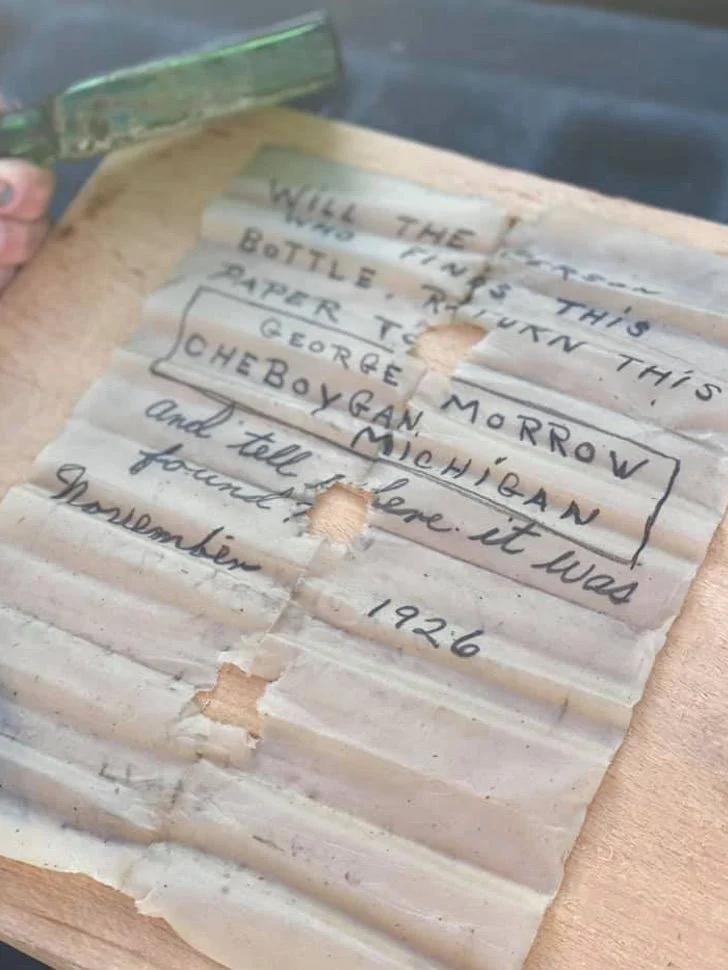 WILL THE PERSON
WHO FINDS THIS
BOTTLE, RETURN THIS
PAPER TO
GEORGE MORROW
CHEBOYGAN, MICHIGAN
and tell where it was
found?
November 1926